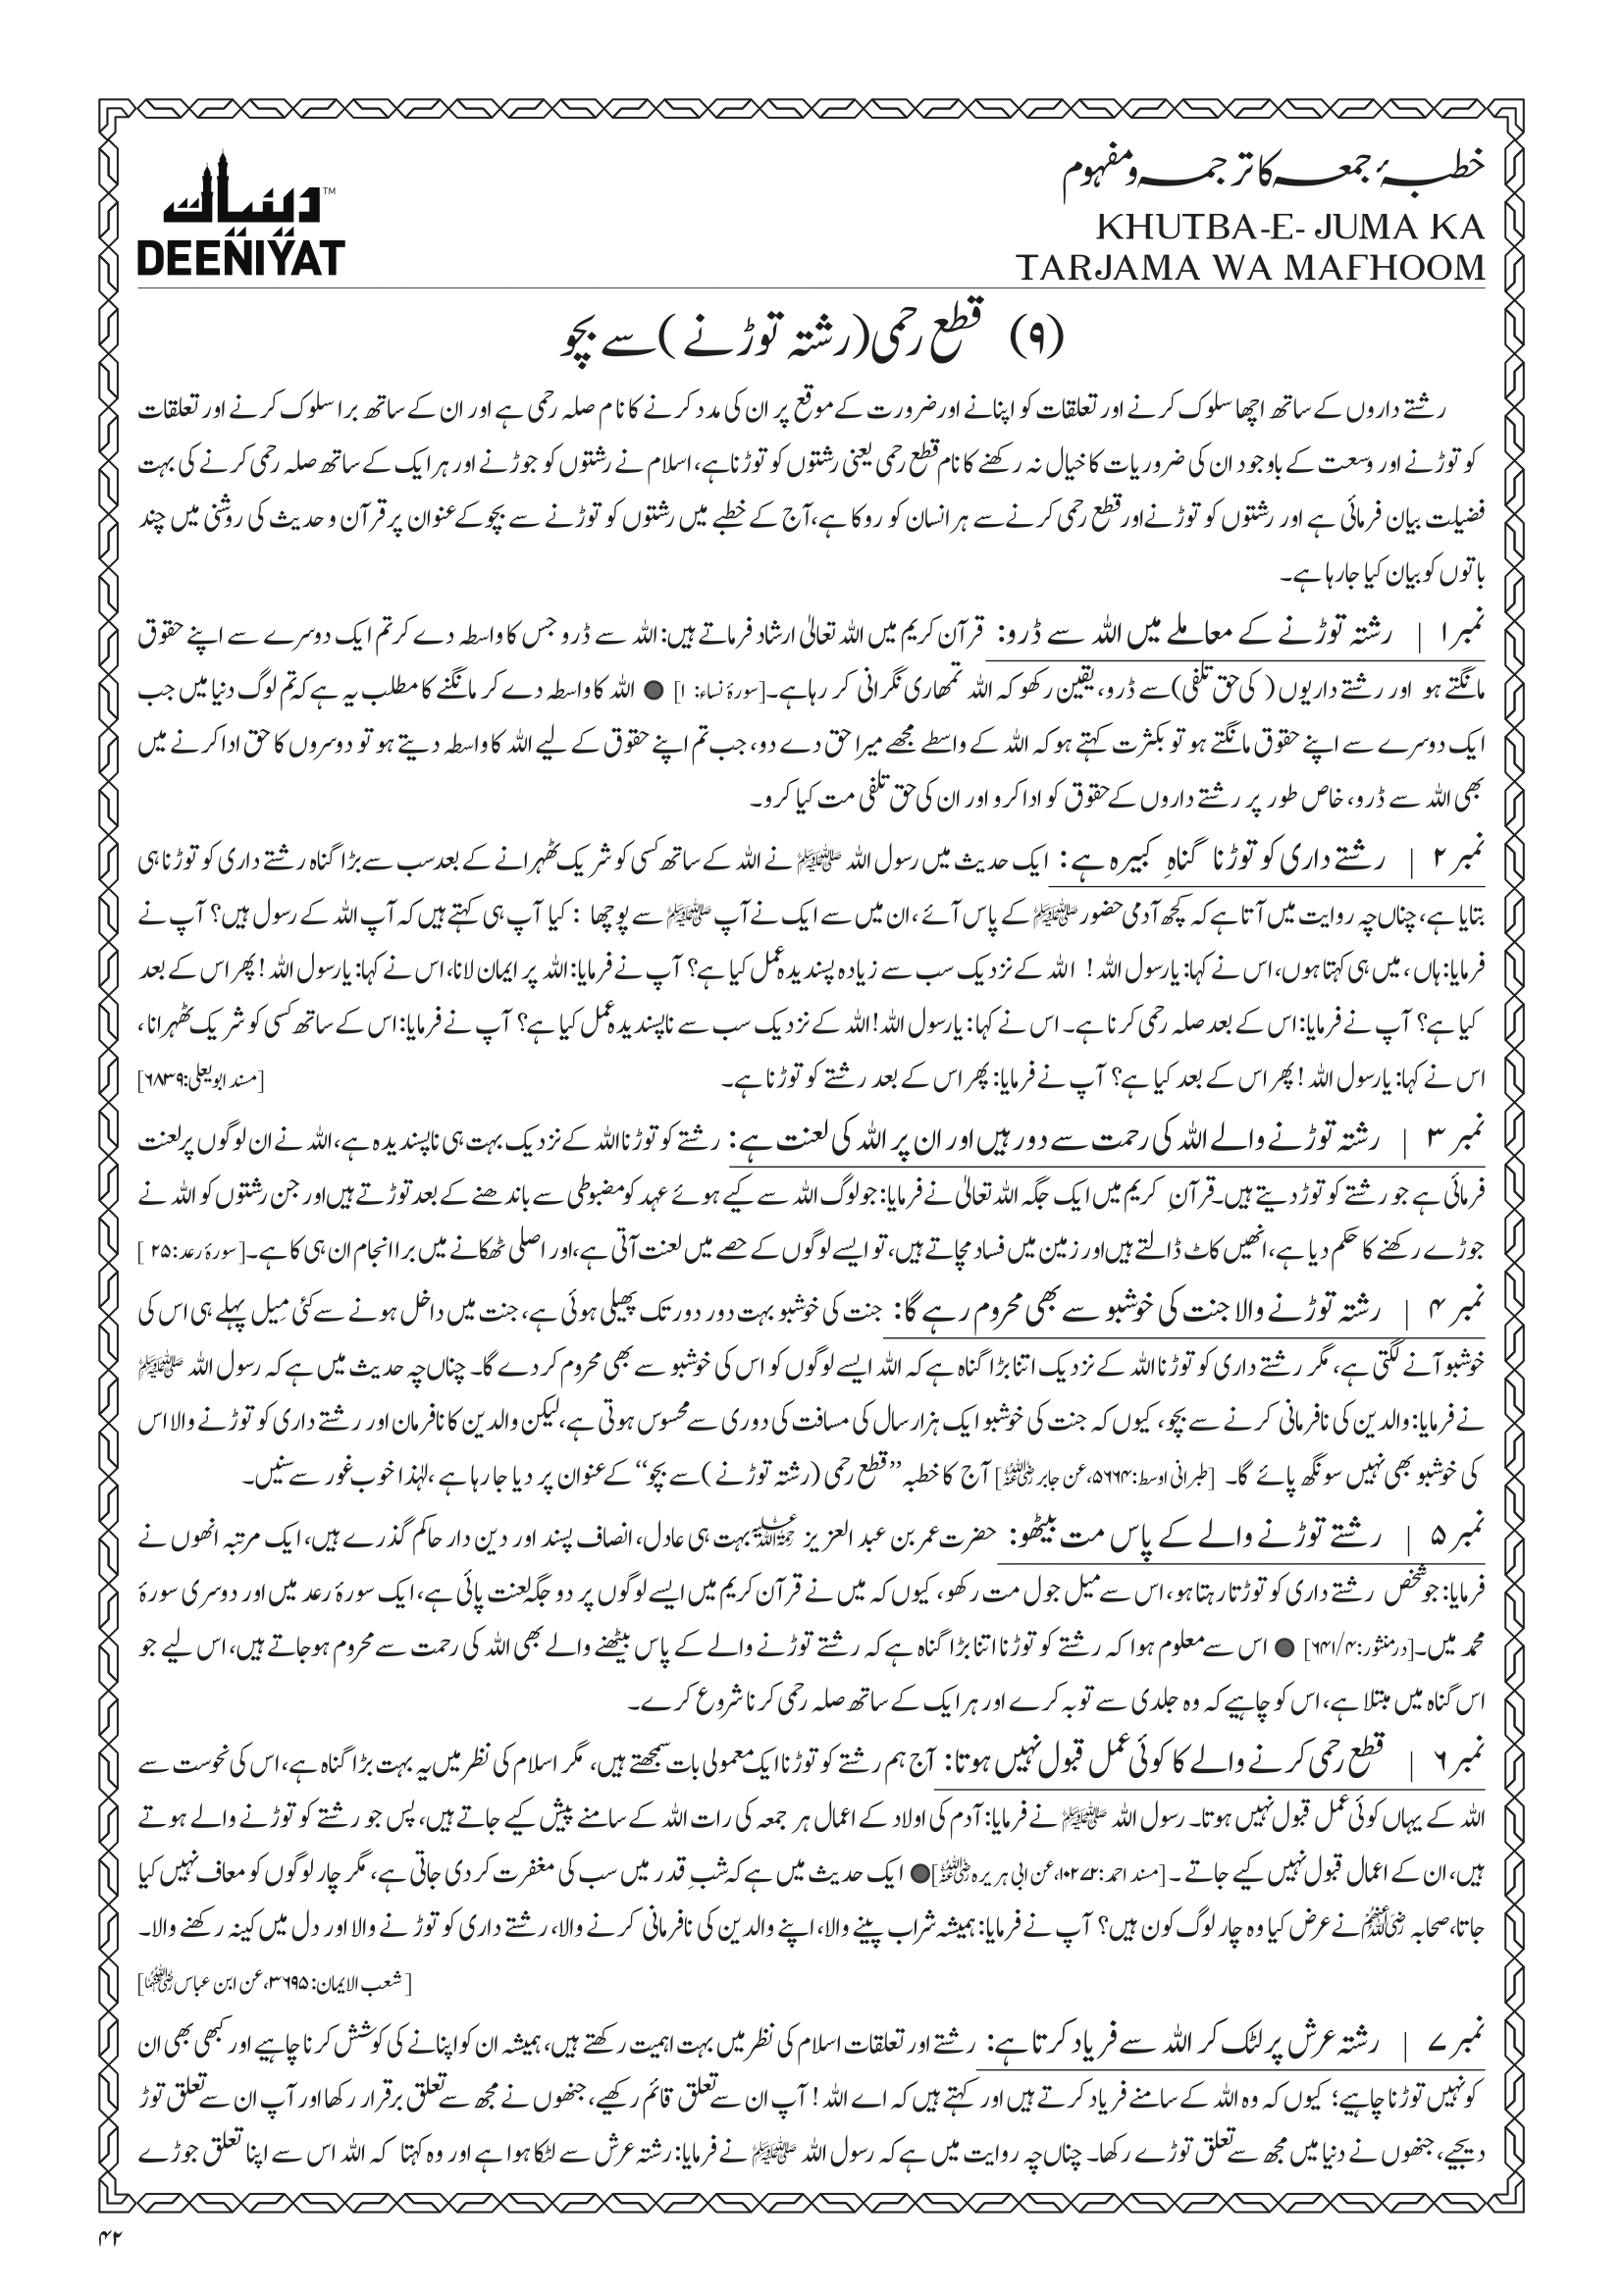 خطبۂ جمعہ کا ترجمہ و مفہوم
دینیات™
DEENIYAT
KHUTBA-E- JUMA KA
TARJAMA WA MAFHOOM
(۹) قطع رحمی (رشتہ توڑنے) سے بچو
رشتے داروں کے ساتھ اچھا سلوک کرنے اور تعلقات کو اپنانے اور ضرورت کے موقع پر ان کی مدد کرنے کا نام صلہ رحمی ہے اور ان کے ساتھ برا سلوک کرنے اور تعلقات
کو توڑنے اور وسعت کے باوجود ان کی ضروریات کا خیال نہ رکھنے کا نام قطع رحمی یعنی رشتوں کو توڑنا ہے، اسلام نے رشتوں کو جوڑنے اور ہر ایک کے ساتھ صلہ رحمی کرنے کی بہت
فضیلت بیان فرمائی ہے اور رشتوں کو توڑنے اور قطع رحمی کرنے سے ہر انسان کو روکا ہے، آج کے خطبے میں رشتوں کو توڑنے سے بچو کے عنوان پر قرآن و حدیث کی روشنی میں چند
باتوں کو بیان کیا جا رہا ہے۔
نمبر ۱ | رشتہ توڑنے کے معاملے میں اللہ سے ڈرو: قرآن کریم میں اللہ تعالیٰ ارشاد فرماتے ہیں: اللہ سے ڈرو جس کا واسطہ دے کر تم ایک دوسرے سے اپنے حقوق
مانگتے ہو اور رشتے داریوں (کی حق تلفی) سے ڈرو، یقین رکھو کہ اللہ تمھاری نگرانی کر رہا ہے۔ [سورۂ نساء: ۱] ● اللہ کا واسطہ دے کر مانگنے کا مطلب یہ ہے کہ تم لوگ دنیا میں جب
ایک دوسرے سے اپنے حقوق مانگتے ہو تو بکثرت کہتے ہو کہ اللہ کے واسطے مجھے میرا حق دے دو، جب تم اپنے حقوق کے لیے اللہ کا واسطہ دیتے ہو تو دوسروں کا حق ادا کرنے میں
بھی اللہ سے ڈرو، خاص طور پر رشتے داروں کے حقوق کو ادا کرو اور ان کی حق تلفی مت کیا کرو۔
نمبر ۲ | رشتے داری کو توڑنا گناہِ کبیرہ ہے: ایک حدیث میں رسول اللہ ﷺ نے اللہ کے ساتھ کسی کو شریک ٹھہرانے کے بعد سب سے بڑا گناہ رشتے داری کو توڑنا ہی
بتایا ہے، چناں چہ روایت میں آتا ہے کہ کچھ آدمی حضور ﷺ کے پاس آئے، ان میں سے ایک نے آپ ﷺ سے پوچھا : کیا آپ ہی کہتے ہیں کہ آپ اللہ کے رسول ہیں؟ آپ نے
فرمایا: ہاں، میں ہی کہتا ہوں، اس نے کہا: یا رسول اللہ! اللہ کے نزدیک سب سے زیادہ پسندیدہ عمل کیا ہے؟ آپ نے فرمایا: اللہ پر ایمان لانا، اس نے کہا: یا رسول اللہ! پھر اس کے بعد
کیا ہے؟ آپ نے فرمایا: اس کے بعد صلہ رحمی کرنا ہے۔ اس نے کہا: یا رسول اللہ! اللہ کے نزدیک سب سے ناپسندیدہ عمل کیا ہے؟ آپ نے فرمایا: اس کے ساتھ کسی کو شریک ٹھہرانا،
اس نے کہا: یا رسول اللہ! پھر اس کے بعد کیا ہے؟ آپ نے فرمایا: پھر اس کے بعد رشتے کو توڑنا ہے۔ [مسند ابو یعلی: ۶۸۳۹]
نمبر ۳ | رشتہ توڑنے والے اللہ کی رحمت سے دور ہیں اور ان پر اللہ کی لعنت ہے: رشتے کو توڑنا اللہ کے نزدیک بہت ہی ناپسندیدہ ہے، اللہ نے ان لوگوں پر لعنت
فرمائی ہے جو رشتے کو توڑ دیتے ہیں۔ قرآنِ کریم میں ایک جگہ اللہ تعالیٰ نے فرمایا: جو لوگ اللہ سے کیے ہوئے عہد کو مضبوطی سے باندھنے کے بعد توڑتے ہیں اور جن رشتوں کو اللہ نے
جوڑے رکھنے کا حکم دیا ہے، انھیں کاٹ ڈالتے ہیں اور زمین میں فساد مچاتے ہیں، تو ایسے لوگوں کے حصے میں لعنت آتی ہے، اور اصلی ٹھکانے میں برا انجام ان ہی کا ہے۔ [سورۂ رعد: ۲۵]
نمبر ۴ | رشتہ توڑنے والا جنت کی خوشبو سے بھی محروم رہے گا: جنت کی خوشبو بہت دور دور تک پھیلی ہوئی ہے، جنت میں داخل ہونے سے کئی مِیل پہلے ہی اس کی
خوشبو آنے لگتی ہے، مگر رشتے داری کو توڑنا اللہ کے نزدیک اتنا بڑا گناہ ہے کہ اللہ ایسے لوگوں کو اس کی خوشبو سے بھی محروم کر دے گا۔ چناں چہ حدیث میں ہے کہ رسول اللہ ﷺ
نے فرمایا: والدین کی نافرمانی کرنے سے بچو، کیوں کہ جنت کی خوشبو ایک ہزار سال کی مسافت کی دوری سے محسوس ہوتی ہے، لیکن والدین کا نافرمان اور رشتے داری کو توڑنے والا اس
کی خوشبو بھی نہیں سونگھ پائے گا۔ [طبرانی اوسط: ۵۶۶۴، عن جابر رضی اللہ عنہ] آج کا خطبہ ”قطع رحمی (رشتہ توڑنے) سے بچو“ کے عنوان پر دیا جا رہا ہے، لہٰذا خوب غور سے سنیں۔
نمبر ۵ | رشتے توڑنے والے کے پاس مت بیٹھو: حضرت عمر بن عبد العزیز رحمۃ اللہ علیہ بہت ہی عادل، انصاف پسند اور دین دار حاکم گذرے ہیں، ایک مرتبہ انھوں نے
فرمایا: جو شخص رشتے داری کو توڑتا رہتا ہو، اس سے میل جول مت رکھو، کیوں کہ میں نے قرآن کریم میں ایسے لوگوں پر دو جگہ لعنت پائی ہے، ایک سورۂ رعد میں اور دوسری سورۂ
محمد میں۔ [درمنثور: ۶۴۱/۴] ● اس سے معلوم ہوا کہ رشتے کو توڑنا اتنا بڑا گناہ ہے کہ رشتے توڑنے والے کے پاس بیٹھنے والے بھی اللہ کی رحمت سے محروم ہو جاتے ہیں، اس لیے جو
اس گناہ میں مبتلا ہے، اس کو چاہیے کہ وہ جلدی سے توبہ کرے اور ہر ایک کے ساتھ صلہ رحمی کرنا شروع کرے۔
نمبر ۶ | قطع رحمی کرنے والے کا کوئی عمل قبول نہیں ہوتا: آج ہم رشتے کو توڑنا ایک معمولی بات سمجھتے ہیں، مگر اسلام کی نظر میں یہ بہت بڑا گناہ ہے، اس کی نحوست سے
اللہ کے یہاں کوئی عمل قبول نہیں ہوتا۔ رسول اللہ ﷺ نے فرمایا: آدم کی اولاد کے اعمال ہر جمعہ کی رات اللہ کے سامنے پیش کیے جاتے ہیں، پس جو رشتے کو توڑنے والے ہوتے
ہیں، ان کے اعمال قبول نہیں کیے جاتے۔ [مسند احمد: ۱۰۲۷۲، عن ابی ہریرہ رضی اللہ عنہ] ● ایک حدیث میں ہے کہ شبِ قدر میں سب کی مغفرت کر دی جاتی ہے، مگر چار لوگوں کو معاف نہیں کیا
جاتا، صحابہ رضی اللہ عنہم نے عرض کیا وہ چار لوگ کون ہیں؟ آپ نے فرمایا: ہمیشہ شراب پینے والا، اپنے والدین کی نافرمانی کرنے والا، رشتے داری کو توڑنے والا اور دل میں کینہ رکھنے والا۔
[شعب الایمان: ۳۶۹۵، عن ابن عباس رضی اللہ عنہما]
نمبر ۷ | رشتہ عرش پر لٹک کر اللہ سے فریاد کرتا ہے: رشتے اور تعلقات اسلام کی نظر میں بہت اہمیت رکھتے ہیں، ہمیشہ ان کو اپنانے کی کوشش کرنا چاہیے اور کبھی بھی ان
کو نہیں توڑنا چاہیے؛ کیوں کہ وہ اللہ کے سامنے فریاد کرتے ہیں اور کہتے ہیں کہ اے اللہ! آپ ان سے تعلق قائم رکھیے، جنھوں نے مجھ سے تعلق برقرار رکھا اور آپ ان سے تعلق توڑ
دیجیے، جنھوں نے دنیا میں مجھ سے تعلق توڑے رکھا۔ چناں چہ روایت میں ہے کہ رسول اللہ ﷺ نے فرمایا: رشتہ عرش سے لٹکا ہوا ہے اور وہ کہتا کہ اللہ اس سے اپنا تعلق جوڑے
۴۲